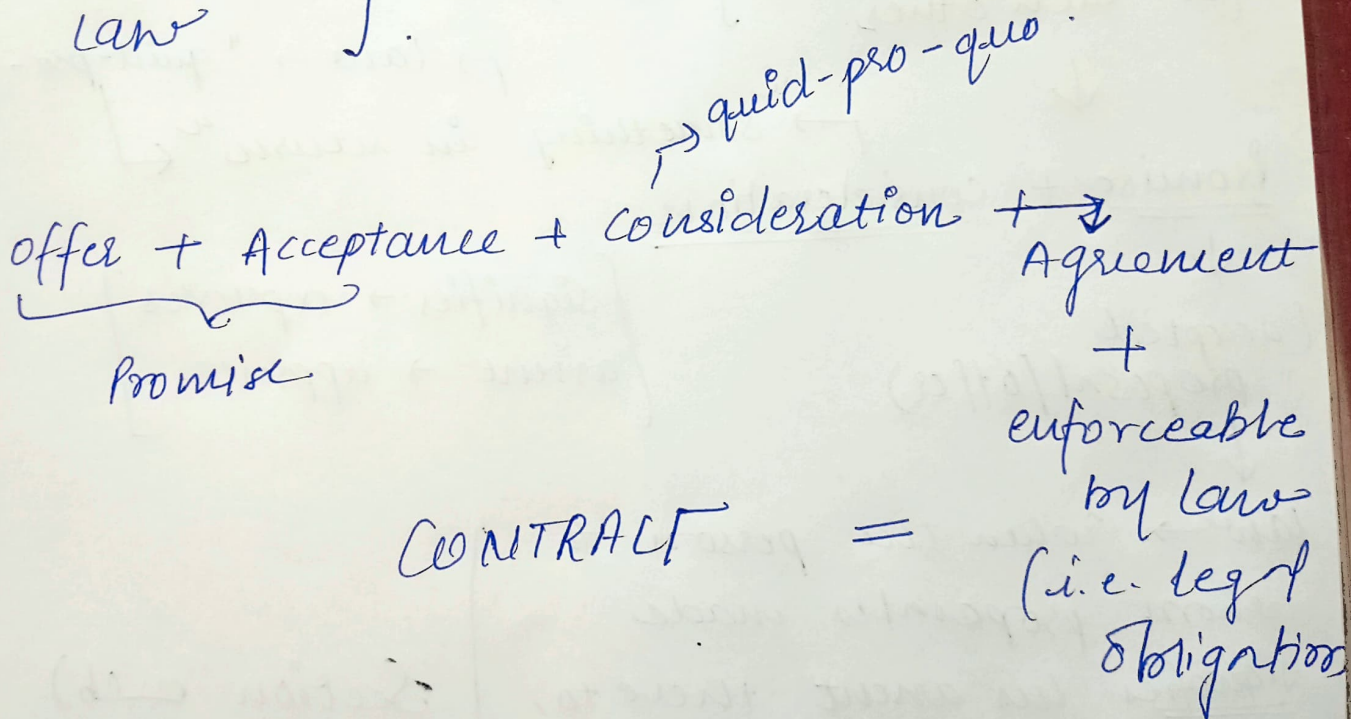 Law ].
quid-pro-quo.
Offer + Acceptance + Consideration + →
Agreement
Promise
+
enforceable
by Law
CONTRACT =
(i.e. legal
obligation